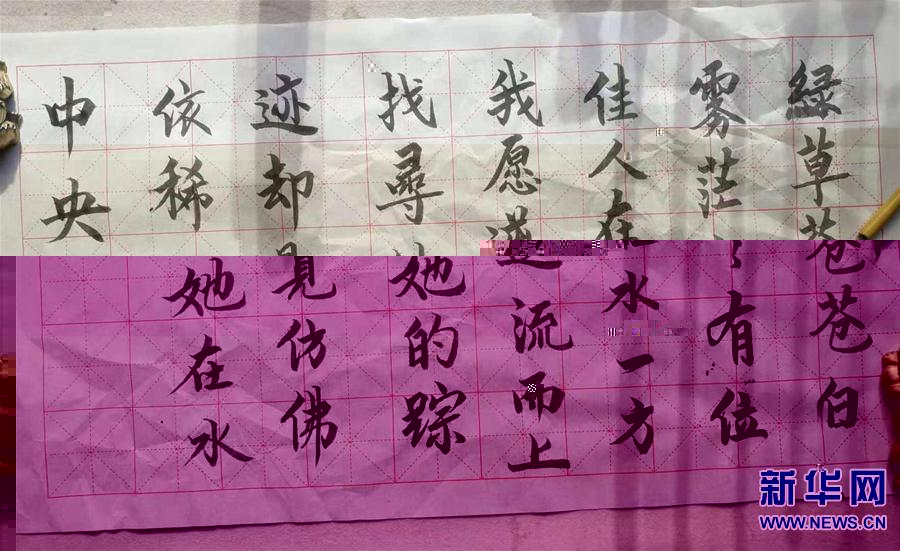 绿草苍苍白
雾茫々有位
佳人在水一方
我愿逆流而上
找尋她的踪
迹却見仿佛
依稀她在水
中央
新华网
WWW.NEWS.CN